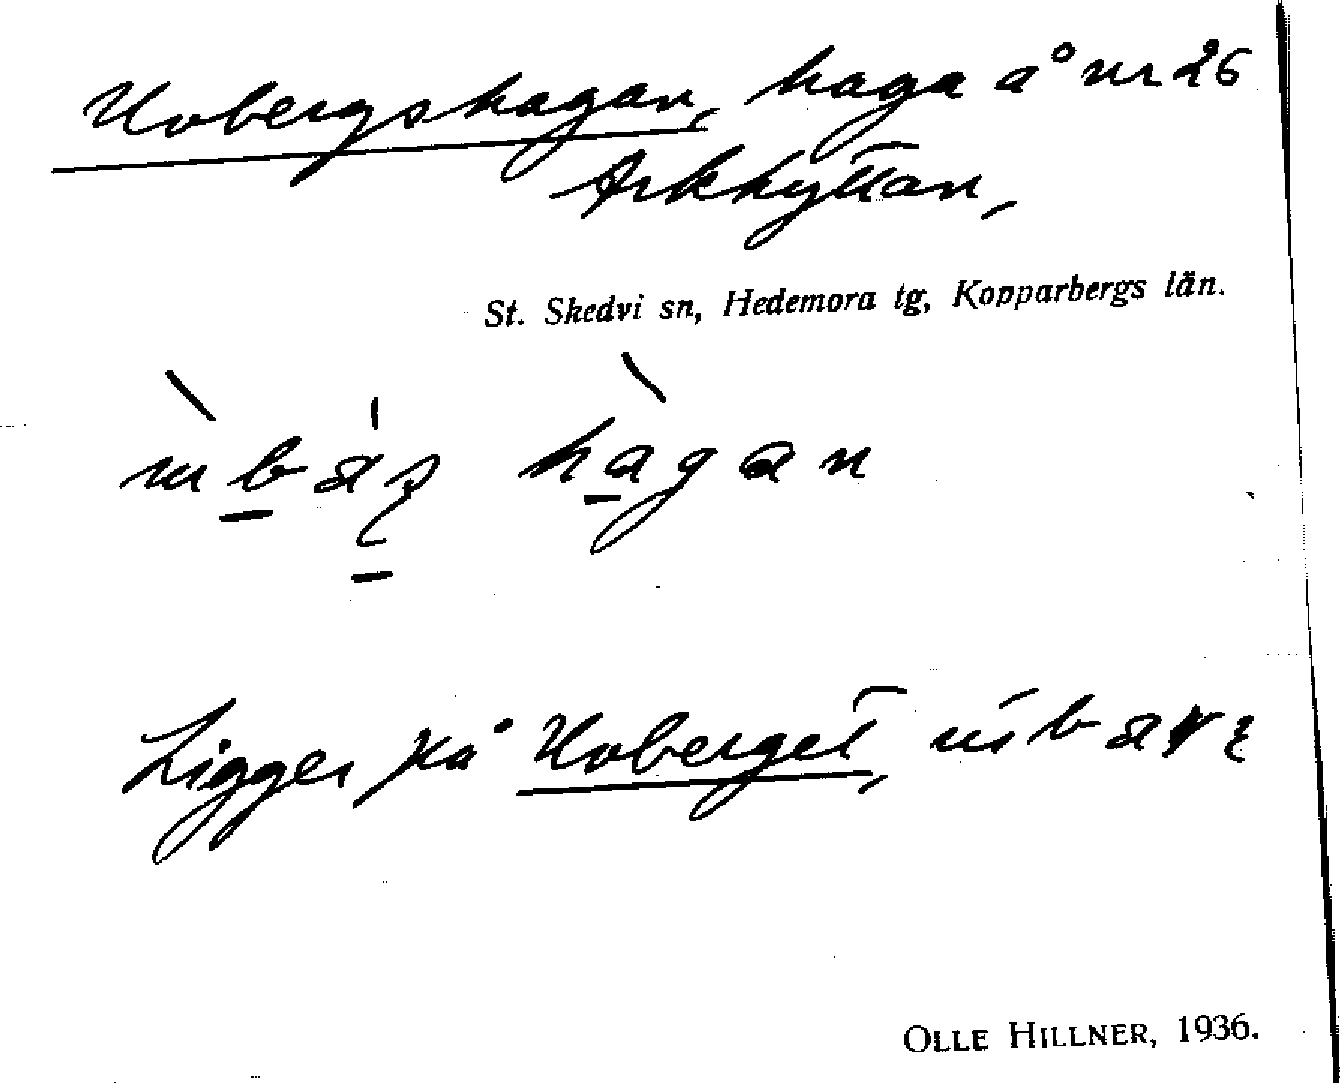 Uobergshagan, haga å nr 26
Arkhyttan,
St. Skedvi sn, Hedemora tg, Kopparbergs län.
hagan
Ligger på Uoberget,
OLLE HILLNER, 1936.